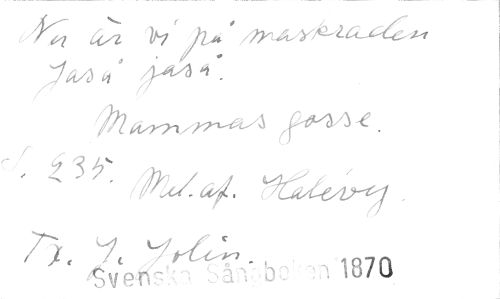 Nu är vi på maskraden
Jaså jaså.
Mammas gosse.
S. 235. Mel. af. Halévy.
Tx. J. Jolin.
Svenska Sångboken 1870